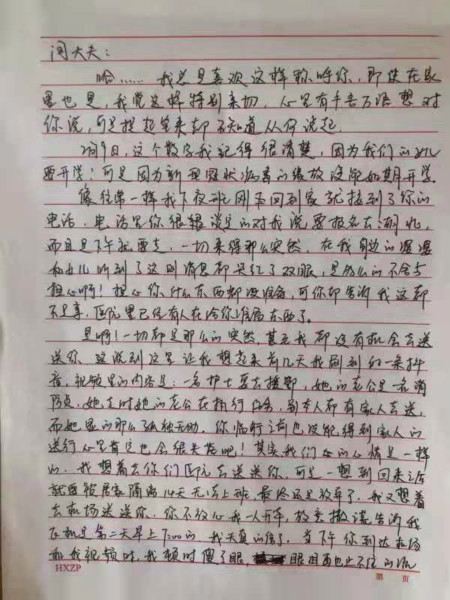 闫大夫：
哈……我总是喜欢这样称呼你，即使在家
里也是，我觉这样特别亲切，心里有千言万语想对
你说，可是提起笔来却不知道从何说起.
2月9日，这个数字我记得很清楚，因为我们的女儿
要开学！可是因为新型冠状病毒的缘故没能如期开学.
像往常一样我下夜班刚下回到家就接到了你的
电话，电话里你很镇定的对我说要报名去湖北，
而且是下午就要走，一切来得那么突然，在我身边的
和女儿听到了这则消息都哭红了双眼，是多么的不舍与
担心啊！担心你什么东西都没准备，可你却告诉我这都
不是事，医院里已经有人在给你准备东西了.
是啊！一切都是那么的突然，甚至我都没有机会去送
送你，这说到这里让我想起来前几天我刷到的一条抖
音，视频里的内容是：一名护士要去援鄂，她的老公是一名消
防员，她走时她的老公在执行任务，别人都有家人去送，
而她是那么孤独无助，你临行之前也没能得到家人的
送行心里肯定也会很失落吧！其实我们女的心情是一样
的，我想着去你们医院去送送你，可是一想到回来之后
就要被居家隔离14天无法上班，最终还是放弃了，我又想着
去机场送送你，你不放心我一人开车，故意撒谎告诉我
飞机是第二天早上7:00的，我天真的信了，当下午你到达机场
和我视频时，我顿时傻了眼，眼泪再也止不住的流
HXZP
第 页